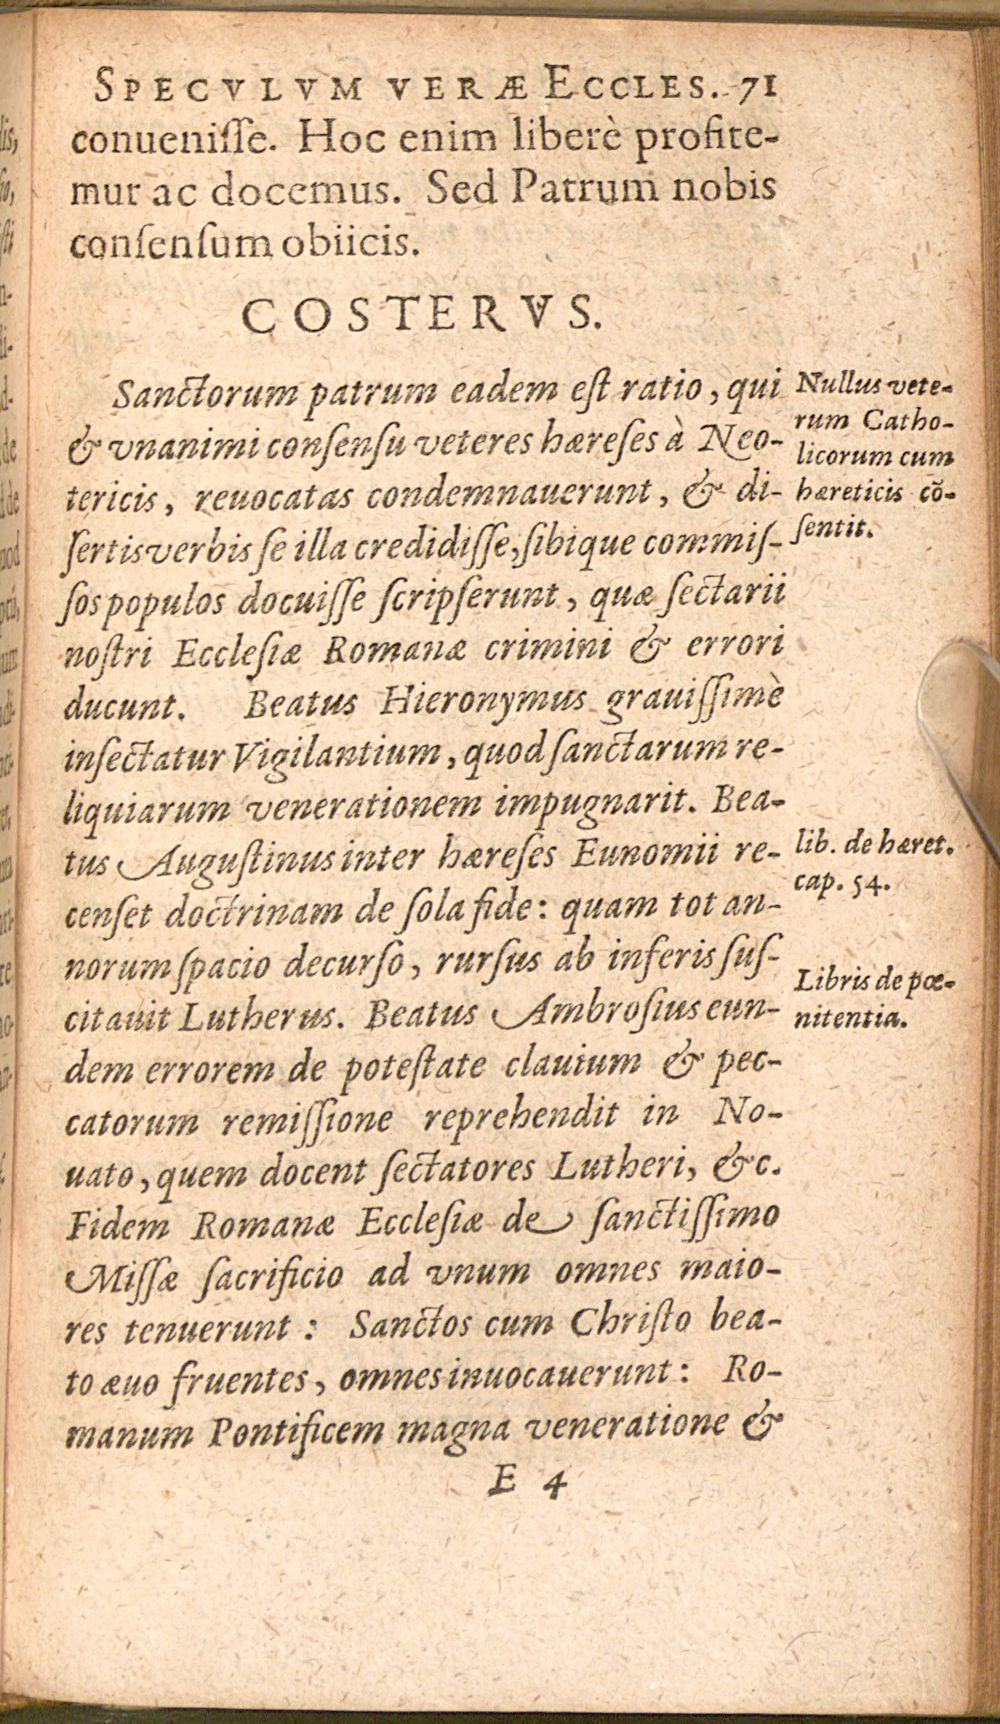 SPECVLVM VERÆ ECCLES. 71
conueniſſe. Hoc enim liberè profite-
mur ac docemus. Sed Patrum nobis
conſenſum obiicis.
COSTERVS.
Sanctorum patrum eadem eſt ratio, qui
& vnanimi conſenſu veteres hæreſes à Neo-
tericis, reuocatas condemnauerunt, & di-
ſertis verbis ſe illa credidiſſe, ſibique commiſ-
ſos populos docuiſſe ſcripſerunt, quæ ſectarii
noſtri Eccleſiæ Romanæ crimini & errori
ducunt. Beatus Hieronymus grauiſſimè
inſectatur Vigilantium, quod ſanctarum re-
liquiarum venerationem impugnarit. Bea-
tus Auguſtinus inter hæreſes Eunomii re-
cenſet doctrinam de ſola fide: quam tot an-
norum ſpacio decurſo, rurſus ab inferis ſuſ-
citauit Lutherus. Beatus Ambroſius eun-
dem errorem de poteſtate clauium & pec-
catorum remiſſione reprehendit in No-
uato, quem docent ſectatores Lutheri, &c.
Fidem Romanæ Eccleſiæ de ſanctiſſimo
Miſſæ ſacrificio ad vnum omnes maio-
res tenuerunt: Sanctos cum Chriſto bea-
to æuo fruentes, omnes inuocauerunt: Ro-
manum Pontificem magna veneratione &
E 4
Nullus vete-
rum Catho-
licorum cum
hæreticis cõ-
ſentit.
lib. de hæret.
cap. 54.
Libris de pœ-
nitentia.